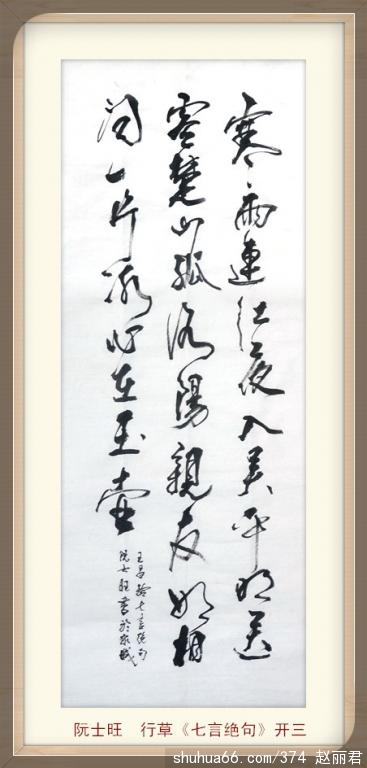 寒雨連江夜入吴平明送
客楚山孤洛陽親友如相
问一片冰心在玉壺
王昌龄七言绝句
阮士旺書於城
阮士旺 行草《七言绝句》开三
shuhua66.com/374 赵丽君